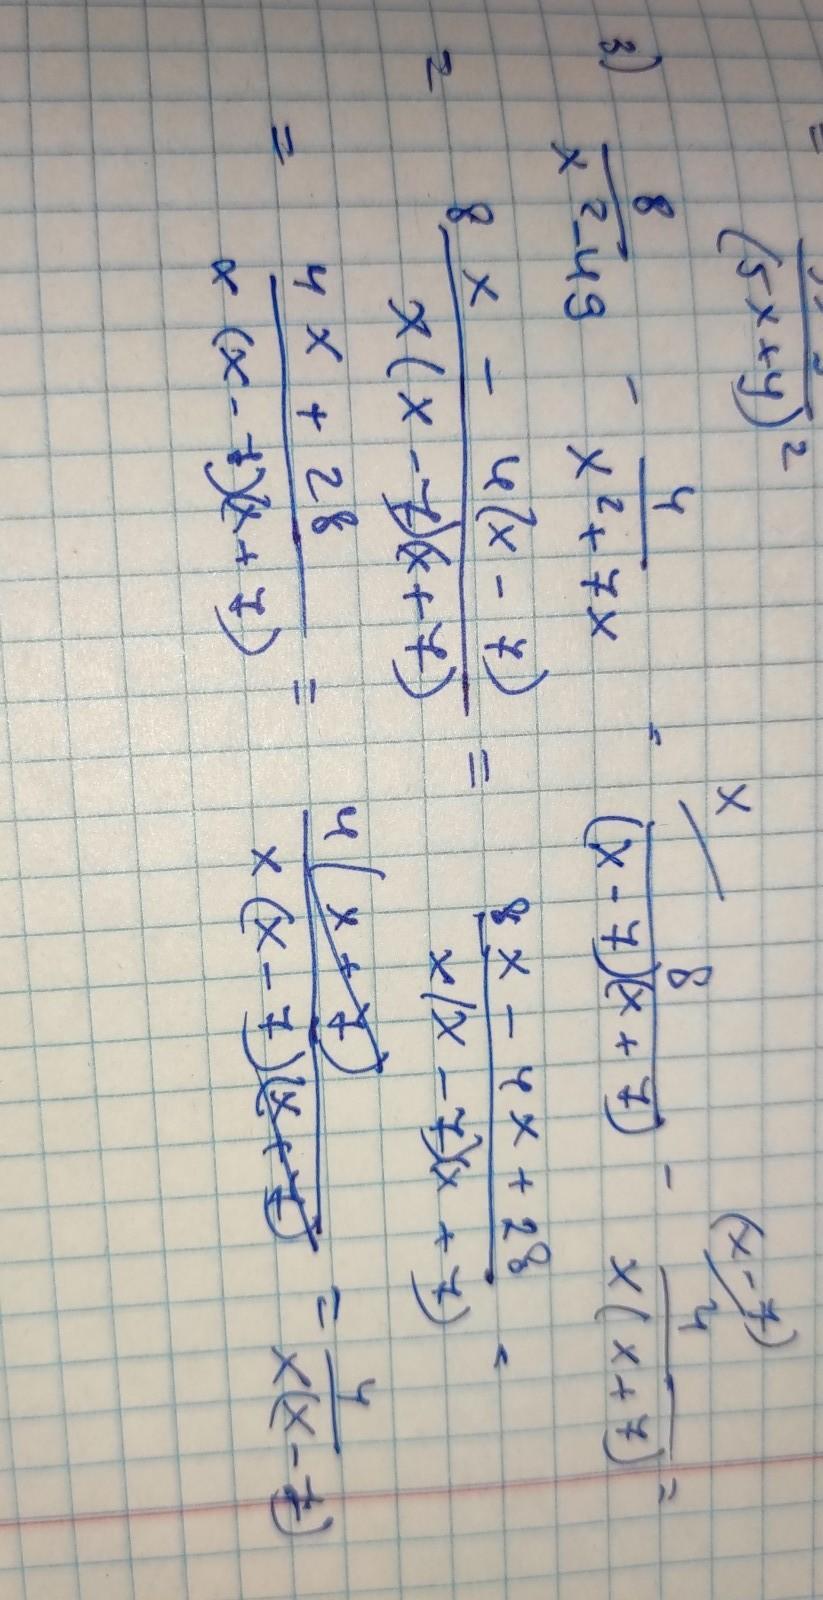 =
(5x+y)²
3) 8/(x²-49) - 4/(x²+7x) = x/ 8/((x-7)(x+7)) - (x-7)/ 4/(x(x+7)) =
= (8x - 4(x-7))/(x(x-7)(x+7)) = (8x - 4x + 28)/(x(x-7)(x+7)) =
= (4x + 28)/(x(x-7)(x+7)) = 4(x+7)/(x(x-7)(x+7)) = 4/(x(x-7))